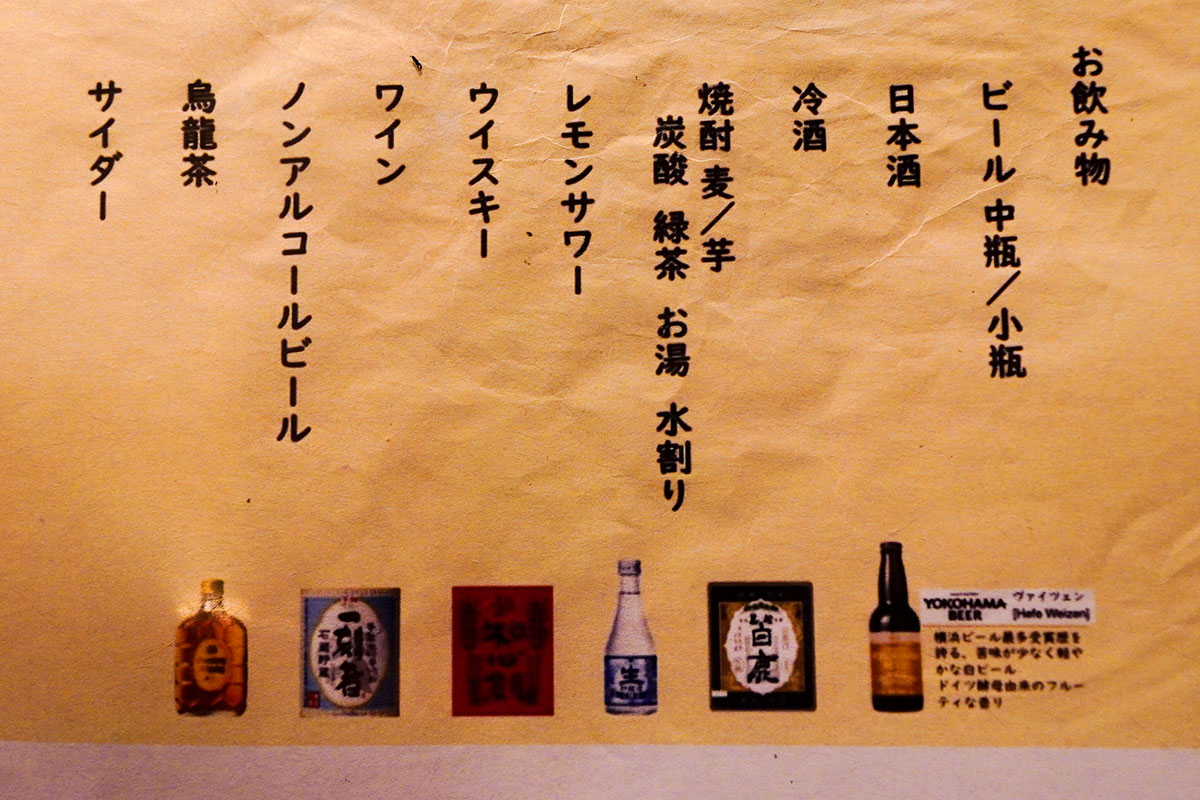 お飲み物
ビール 中瓶/小瓶
日本酒
冷酒
焼酎 麦/芋
炭酸 緑茶 お湯 水割り
レモンサワー
ウイスキー
ワイン
ノンアルコールビール
烏龍茶
サイダー
一刻者
石蔵貯蔵
生
白鹿
YOKOHAMA
BEER
ヴァイツェン
[Hefe Weizen]
横浜ビール最多受賞歴を
誇る、苦味が少なく軽や
かな白ビール
ドイツ酵母由来のフルー
ティな香り